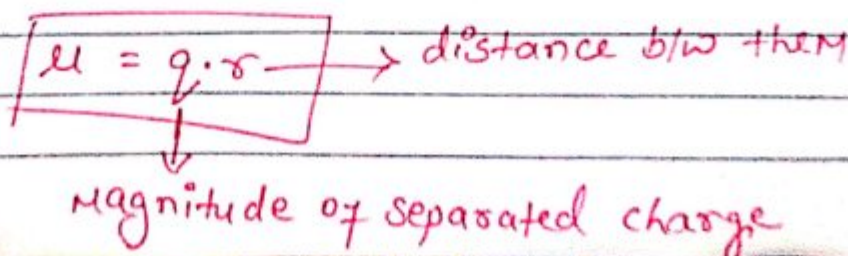 μ = q.r → distance b/w them
Magnitude of separated charge